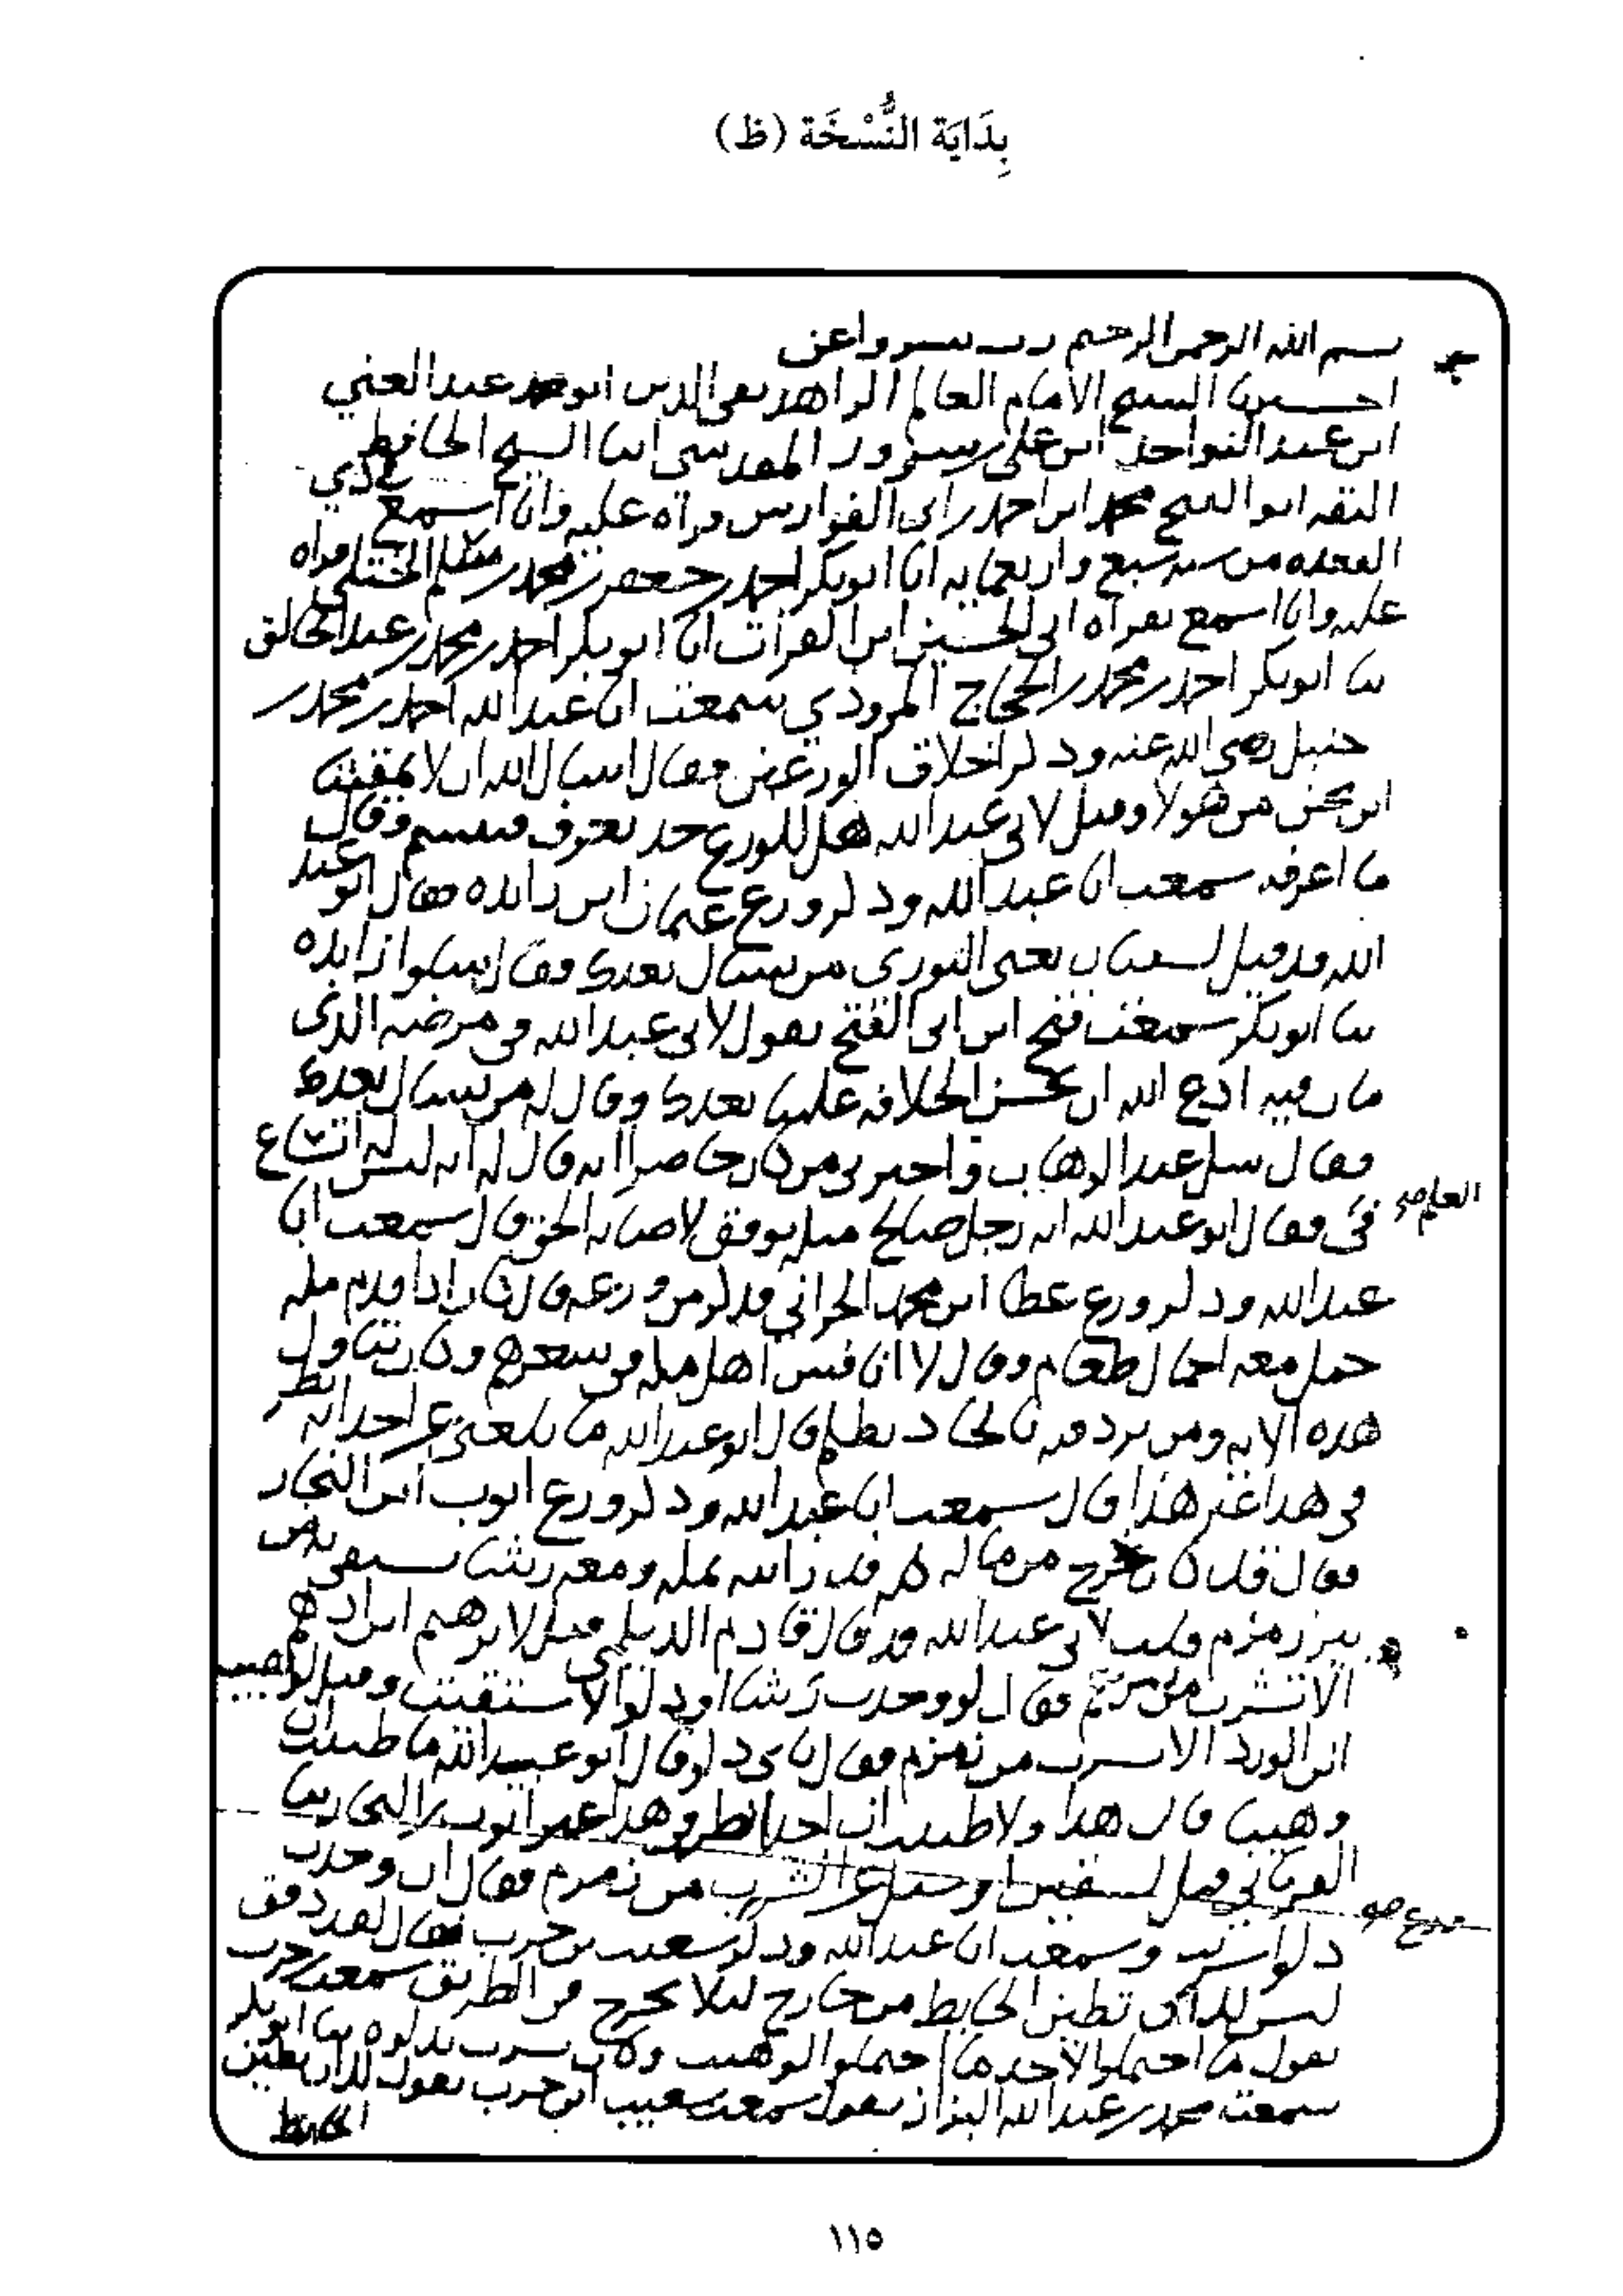 بِدَايَة النُّسْخَة (ظ)
بسم الله الرحمن الرحيم رب يسر واعن
الشيخ الامام العالم الزاهد تقي الدين ابو محمد عبد الغني
ابن عبد الواحد ابن علي بن سرور المقدسي انبا الشيخ الحافظ
الثقه ابو الفتح محمد ابن احمد بن ابي الفوارس قراة عليه وانا اسمع في ذي
القعده من سنه سبع واربعمايه انا ابو بكر احمد بن جعفر بن محمد بن سلم الختلي قراه
عليه وانا اسمع بقراه ابي الحسين ابن الفرات انا ابو بكر احمد بن محمد بن عبد الخالق
ثنا ابو بكر احمد بن محمد بن الحجاج المروذي سمعت ابا عبد الله احمد بن محمد بن
حنبل رضي الله عنه وذكر اخلاق الورعين فقال اسال الله ان لا يمقتنا
اين نحن من هولا وقيل لابي عبد الله هل للورع حد يعرف فتبسم وقال
ما اعرفه سمعت ابا عبد الله وذكر ورع عثمان ابن زايده فقال ابو عبد
الله وقد قيل لسفيان يعني الثوري من نسال بعدك فقال سلوا زايده
ثنا ابو بكر سمعت فتح ابن ابي الفتح يقول لابي عبد الله في مرضه الذي
مات فيه ادع الله ان يحسن الخلافه علينا بعدك وقال له من نسال بعدك
فقال سل عبد الوهاب واخبرني من كان حاضرا انه قال له انه ليس له اتساع
في العلم صح فقال ابو عبد الله انه رجل صالح مثله يوفق لاصابه الحق قال سمعت ابا
عبد الله وذكر ورع عطا ابن محمد الحراني فذكر من ورعه قال كان اذا قدم مكه
حمل معه احمال طعام وقال لا انافس اهل مكه في سعرهم وكان يتاول
هذه الايه ومن يرد فيه بالحاد بظلم قال ابو عبد الله ما بلغني عن احد انه نظر
في هذا غير هذا قال سمعت ابا عبد الله وذكر ورع ايوب ابن النجار
فقال قد كان يخرج من ماله كله قد رايته بمكه ومعه رشا يستقي به من
بير زمزم وقلت لابي عبد الله قد قال قادم الديلمي قيل لابرهيم ابن ادهم
الا تشرب من زمزم فقال لو وجدت رشا او دلوا لاستقيت وقيل لوهيب
ابن الورد الا تشرب من زمزم فقال باي دلو قال ابو عبد الله ما ظننت ان
وهيبا قال هذا ولا ظننت ان احدا نظر في هذا غير ايوب بن النجار ثنا
قيل لسفين الشرب من زمزم فقال ان وجدت
دلوا شربت وسمعت ابا عبد الله وذكر شعيب بن حرب فقال لقد دقق
ليس لك ان تطين الحايط من خارج ليلا يخرج في الطريق سمعت بن حرب
يقول ما احتملوا لاحد ما احتملوا لوهيب وكان يشرب بدلوه ثنا ابو بكر
سمعت محمد بن عبد الله البزاز يقول سمعت شعيب ابن حرب يقول لك ان تطين
الحايط
١١٥